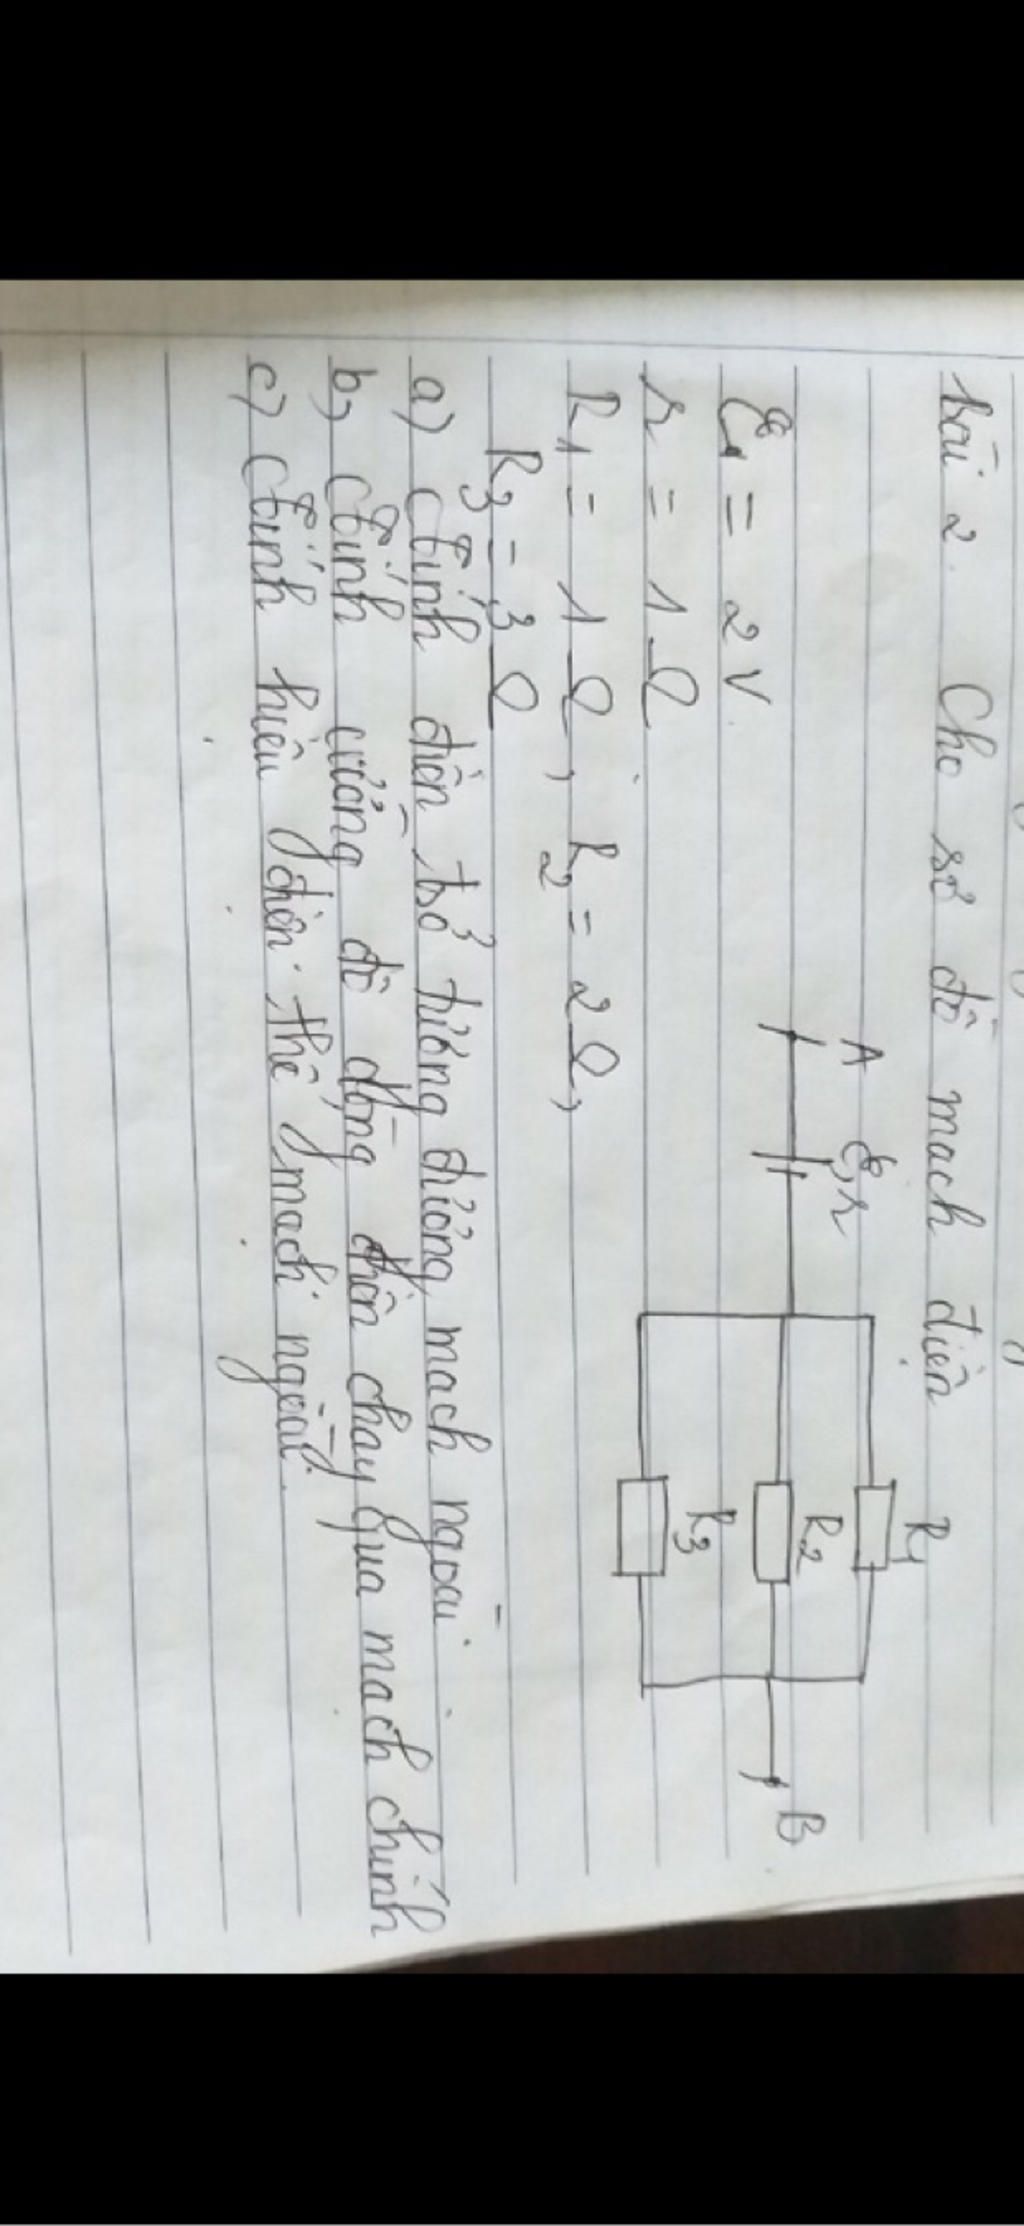 Bài 2. Cho sơ đồ mạch điện
A E,r R1
R2
R3
B
E = 2V
r = 1Ω
R1 = 1Ω, R2 = 2Ω,
R3 = 3Ω
a) Tính điện trở tương đương mạch ngoài
b, Tính cường độ dòng điện chạy qua mạch chính
c) Tính hiệu điện thế mạch ngoài.